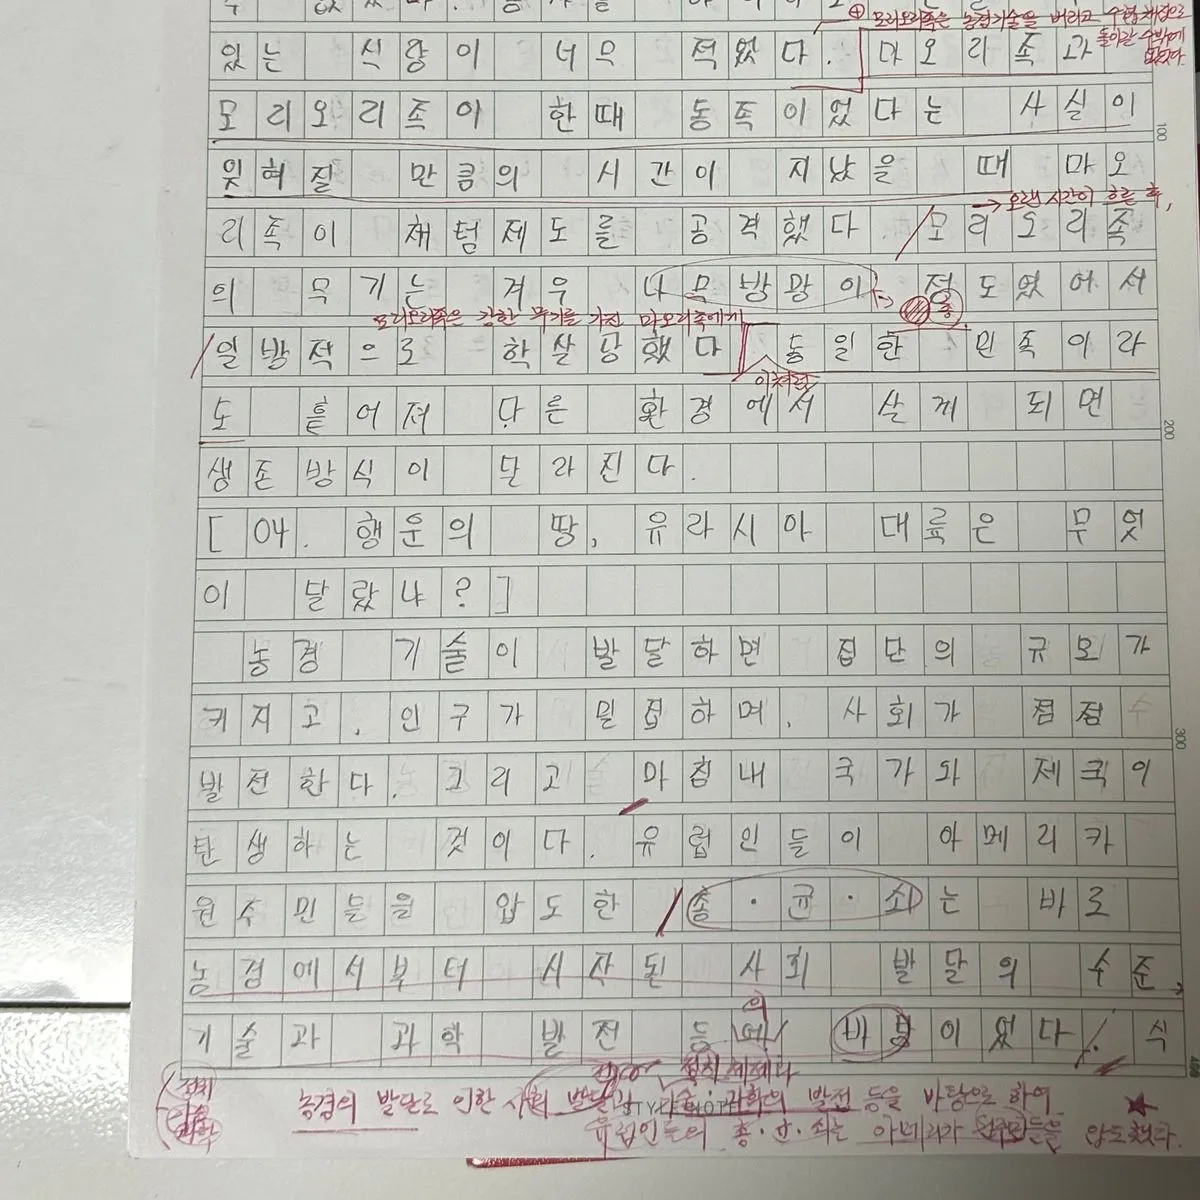 ⊕ 모리오리족은 농경기술을 버리고 수렵채집으로
돌아갈 수밖에
없었다.
있는 식량이 너무 적었다. 마오리족과
모리오리족이 한때 동족이었다는 사실이
100
잊혀질 만큼의 시간이 지났을 때 마오
→ 오랜 시간이 흐른 후,
리족이 채텀제도를 공격했다 모리오리족
의 무기는 겨우 나무방망이 정도였어서
총
모리오리족은 강한 무기를 가진 마오리족에게
일방적으로 학살당했다 동일한 민족이라
이처럼
도 흩어져 다른 환경에서 살게 되면
200
생존방식이 달라진다.
[04. 행운의 땅, 유라시아 대륙은 무엇
이 달랐나?]
농경 기술이 발달하면 집단의 규모가
커지고, 인구가 밀접하며, 사회가 점점
300
발전한다. 그리고 마침내 국가와 제국이
탄생하는 것이다. 유럽인들이 아메리카
원주민들을 압도한 총·균·쇠는 바로
농경에서부터 시작된 사회 발달의 수준,
의
기술과 과학 발전 등에 바탕이었다. 식
400
정치
기술
과학
정치체제나
농경의 발달로 인한 사회 발달과 기술·과학의 발전 등을 바탕으로 하여
유럽인들의 총·균·쇠는 아메리카 원주민들을 압도했다.